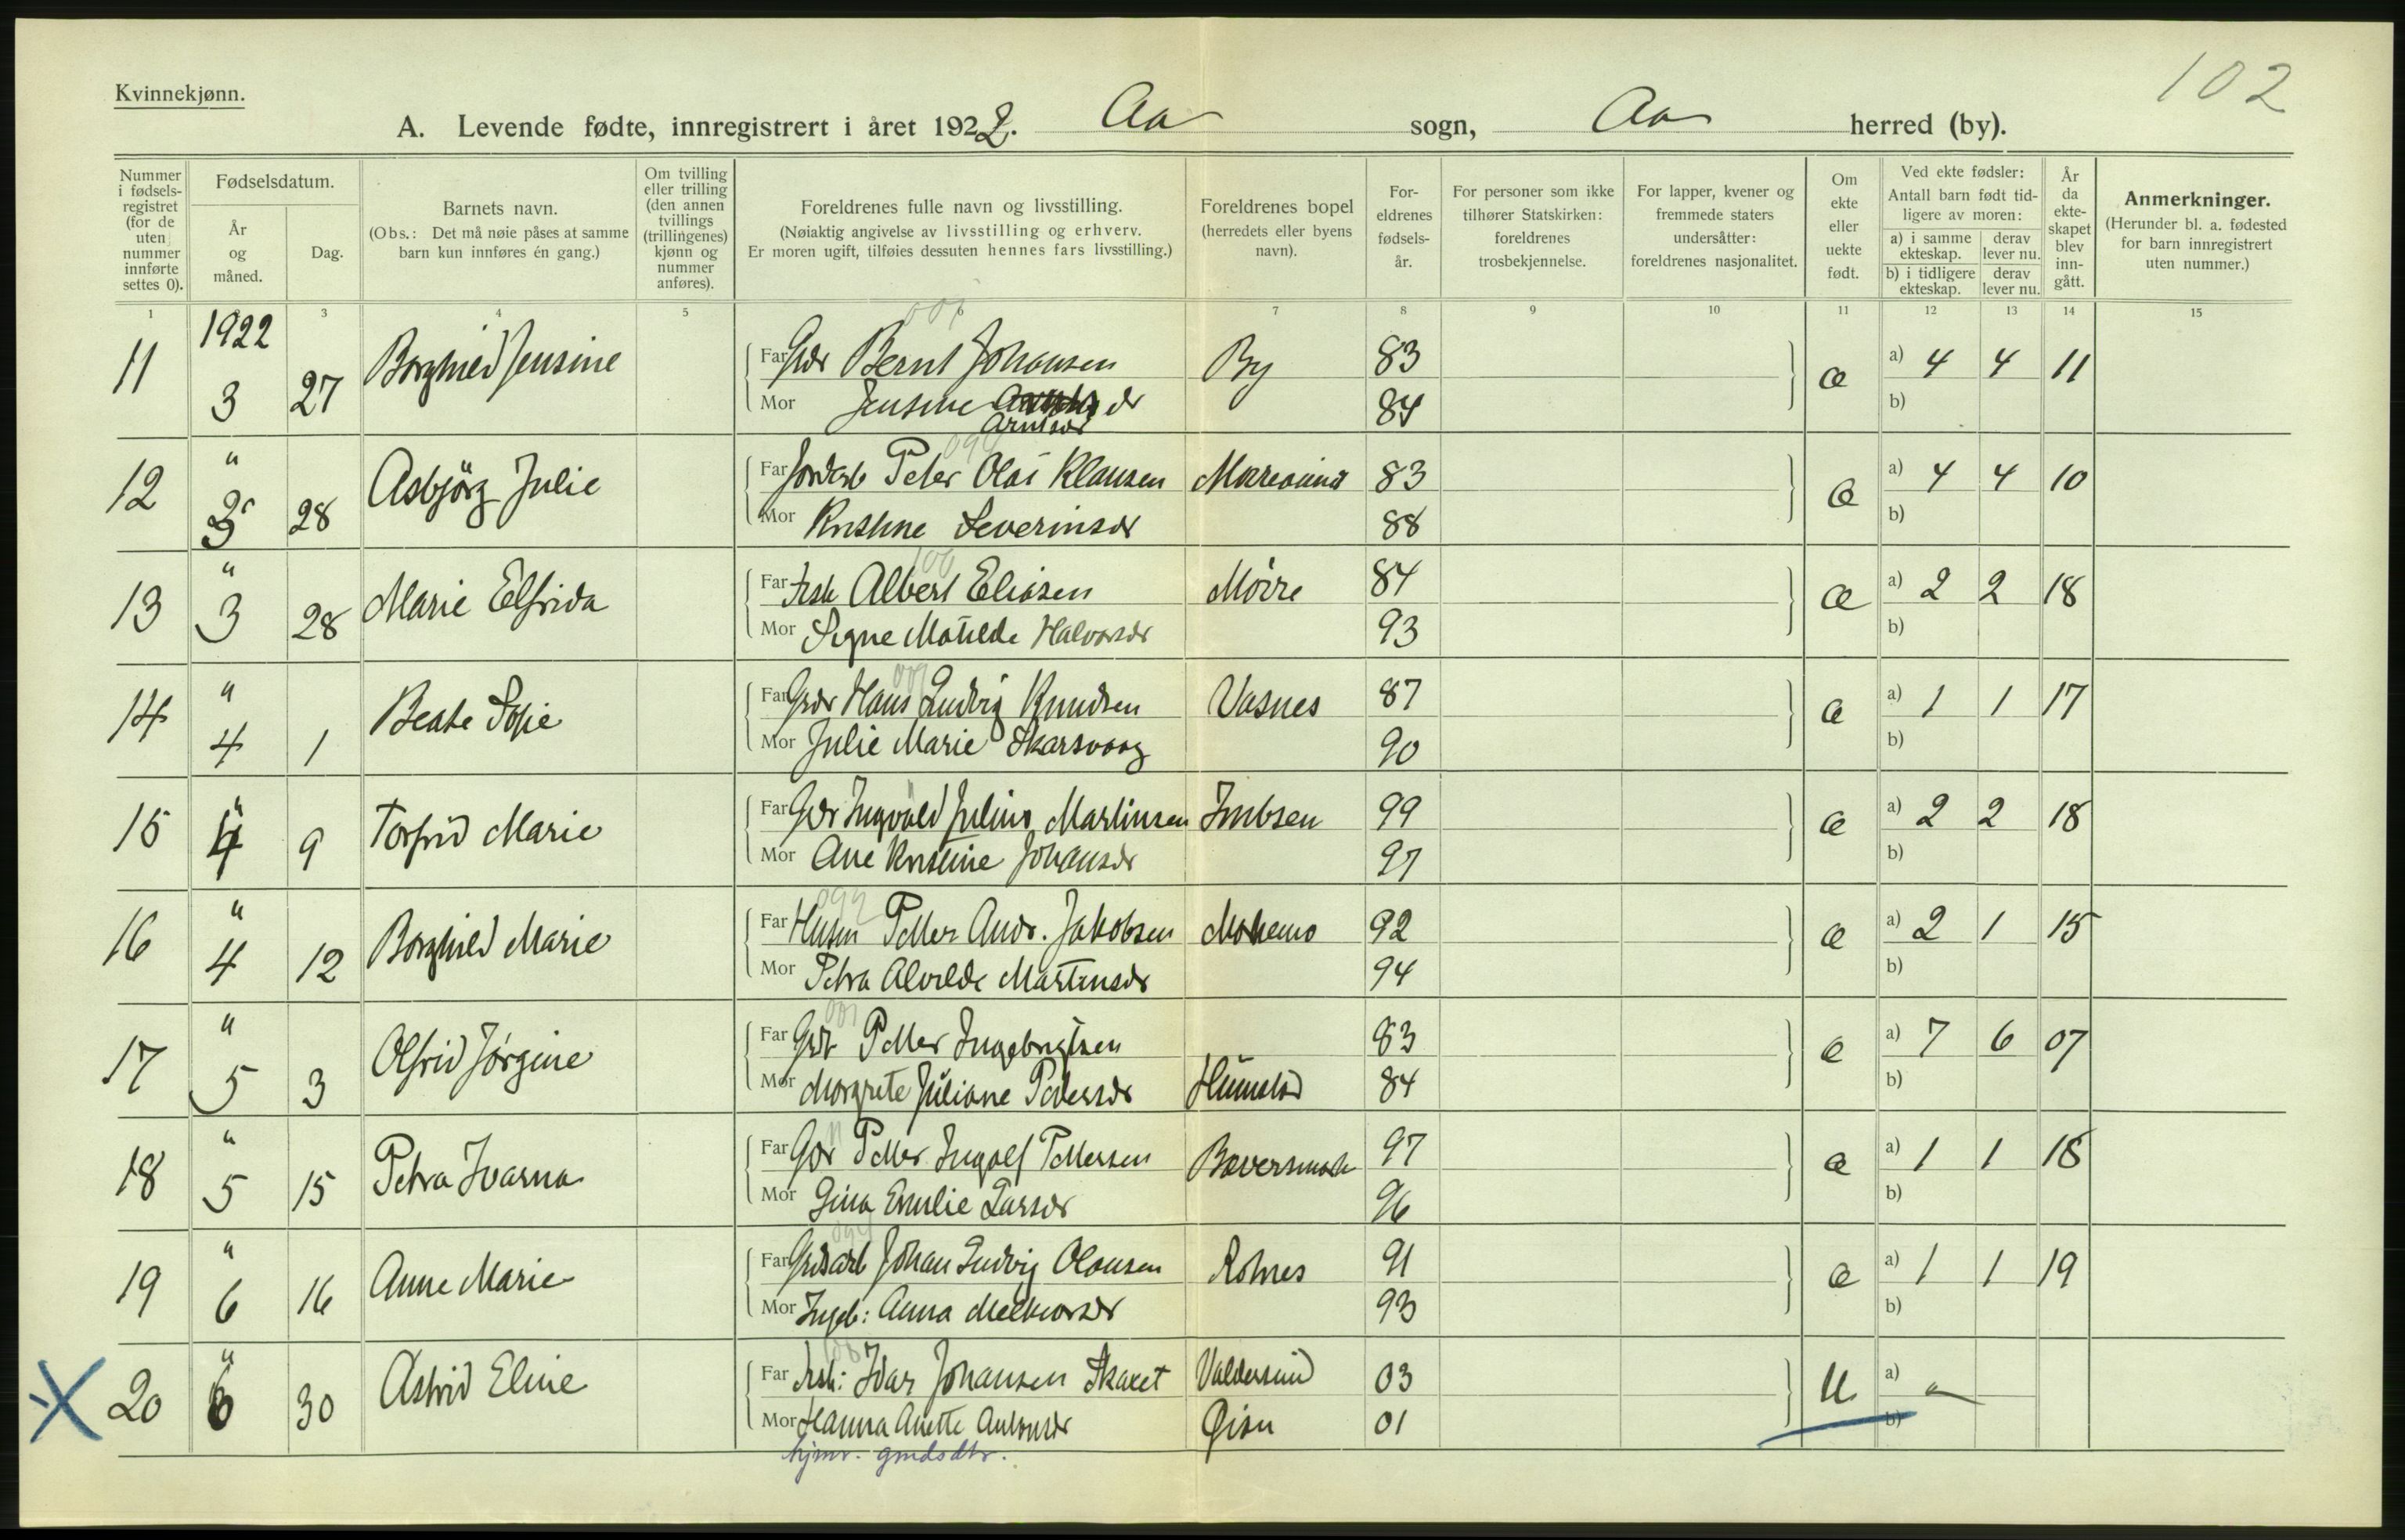 102
Kvinnekjønn.
A. Levende fødte, innregistrert i året 1922. Aa sogn, Aa herred (by).
Nummer i fødsels-registret (for de uten nummer innførte settes 0).
Fødselsdatum.
År og måned.
Dag.
Barnets navn.
(Obs.: Det må nøie påses at samme barn kun innføres én gang.)
Om tvilling eller trilling (den annen tvillings (trillingenes) kjønn og nummer anføres).
Foreldrenes fulle navn og livsstilling.
(Nøiaktig angivelse av livsstilling og erhverv.
Er moren ugift, tilføies dessuten hennes fars livsstilling.)
Foreldrenes bopel
(herredets eller byens navn).
For-eldrenes fødsels-år.
For personer som ikke tilhører Statskirken: foreldrenes trosbekjennelse.
For lapper, kvener og fremmede staters undersåtter: foreldrenes nasjonalitet.
Om ekte eller uekte født.
Ved ekte fødsler:
Antall barn født tid-ligere av moren:
a) i samme ekteskap. derav lever nu.
b) i tidligere ekteskap. derav lever nu.
År da ekte-skapet blev inn-gått.
Anmerkninger.
(Herunder bl. a. fødested for barn innregistrert uten nummer.)
1 3 4 5 6 7 8 9 10 11 12 13 14 15
11 1922 3 27 Borghild Jensine Far Gdr Bernt Johansen By 83 Æ a) 4 4 11
Mor Jensine dr 84 b)
Arntsdr
12 " 3 28 Asbjörg Julie Far Jordarb Peter Olai Klausen 83 Æ a) 4 4 10
Mor Kristine Severinsdr 88 b)
13 " 3 28 Marie Elfrida Far Fisk Albert Eliasen Mörre 84 Æ a) 2 2 18
Mor Signe Matilde Halvorsdr 93 b)
14 " 4 1 Beate Sofie Far Gdr Hans Ludvig Knudsen Vasnes 87 Æ a) 1 1 17
Mor Julie Marie Skarsvaag 90 b)
15 " 4 9 Torfrid Marie Far Gdr Ingvald Julius Martinsen Imbsen 99 Æ a) 2 2 18
Mor Ane Kristine Johansdr 97 b)
16 " 4 12 Borghild Marie Far Husm Petter Andr. Jakobsen Mohemo 92 Æ a) 2 1 15
Mor Petra Alvilde Martinsdr 94 b)
17 " 5 3 Olfrid Jørgine Far Gdr Petter Ingebrigtsen 83 Æ a) 7 6 07
Mor Margrete Juliane Pedersdr Humstad 84 b)
18 " 5 15 Petra Ivarna Far Gdr Petter Ingolf Pettersen 97 Æ a) 1 1 18
Mor Gina Emilie Larsdr 96 b)
19 " 6 16 Anne Marie Far Grdsarb Johan Ludvig Olausen 91 Æ a) 1 1 19
Mor Ingeb: Anna Melkiorsdr 93 b)
X 20 " 6 30 Astrid Eline Far Fisk: Ivar Johansen Skaret Valdersund 03 U a)
Mor Hanna Anette Antonsdr 01 b)
hjmv. grdsdtr.